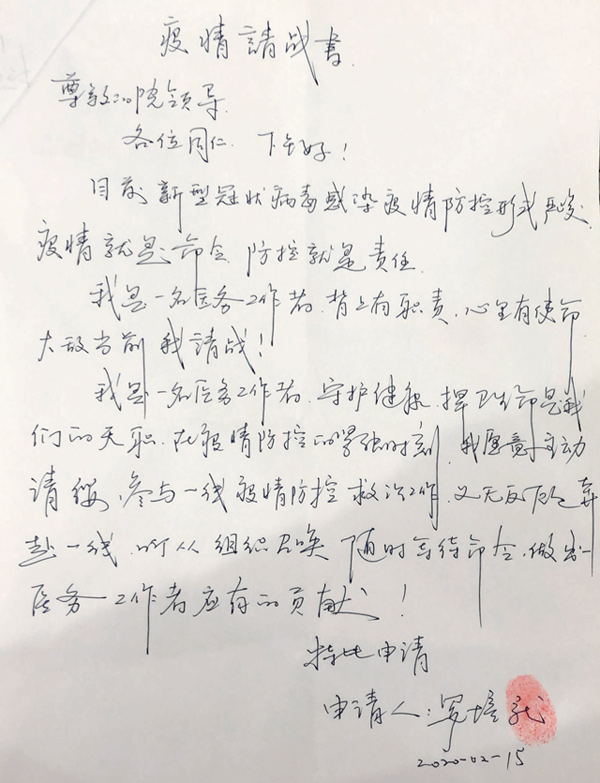 疫情請战书
尊敬的院领导
各位同仁 下午好！
目前新型冠状病毒感染疫情防控形式严峻
疫情就是命令 防控就是责任
我是一名医务工作者，背上有职责，心里有使命
大敌当前 我請战！
我是一名医务工作者，守护健康，捍卫生命是我
们的天职，在疫情防控的紧张时刻，我愿意主动
请缨，参与一线疫情防控救治工作，义无反顾之奔
赴一线，听从组织召唤 随时等待命令，做出
医务工作者应有的贡献！
特此申请
申请人：罗培龙
2020-02-15